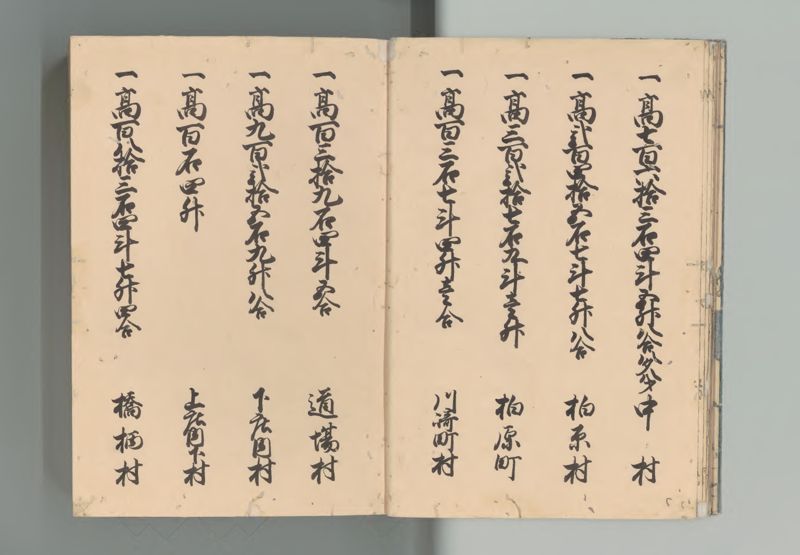 一高七百六拾三石四斗五升八合八夕八才 中村
一高弐百四拾五石七斗七升八合 柏原村
一高三百弐拾七石九斗壱升 柏原町
一高百三石七斗四升壱合 川崎町村
一高百三拾九石四斗五合 道場村
一高九百弐拾五石九升八合 下庄田村
一高百石四升 上庄田下村
一高百八拾三石四斗七升四合 橋桶村